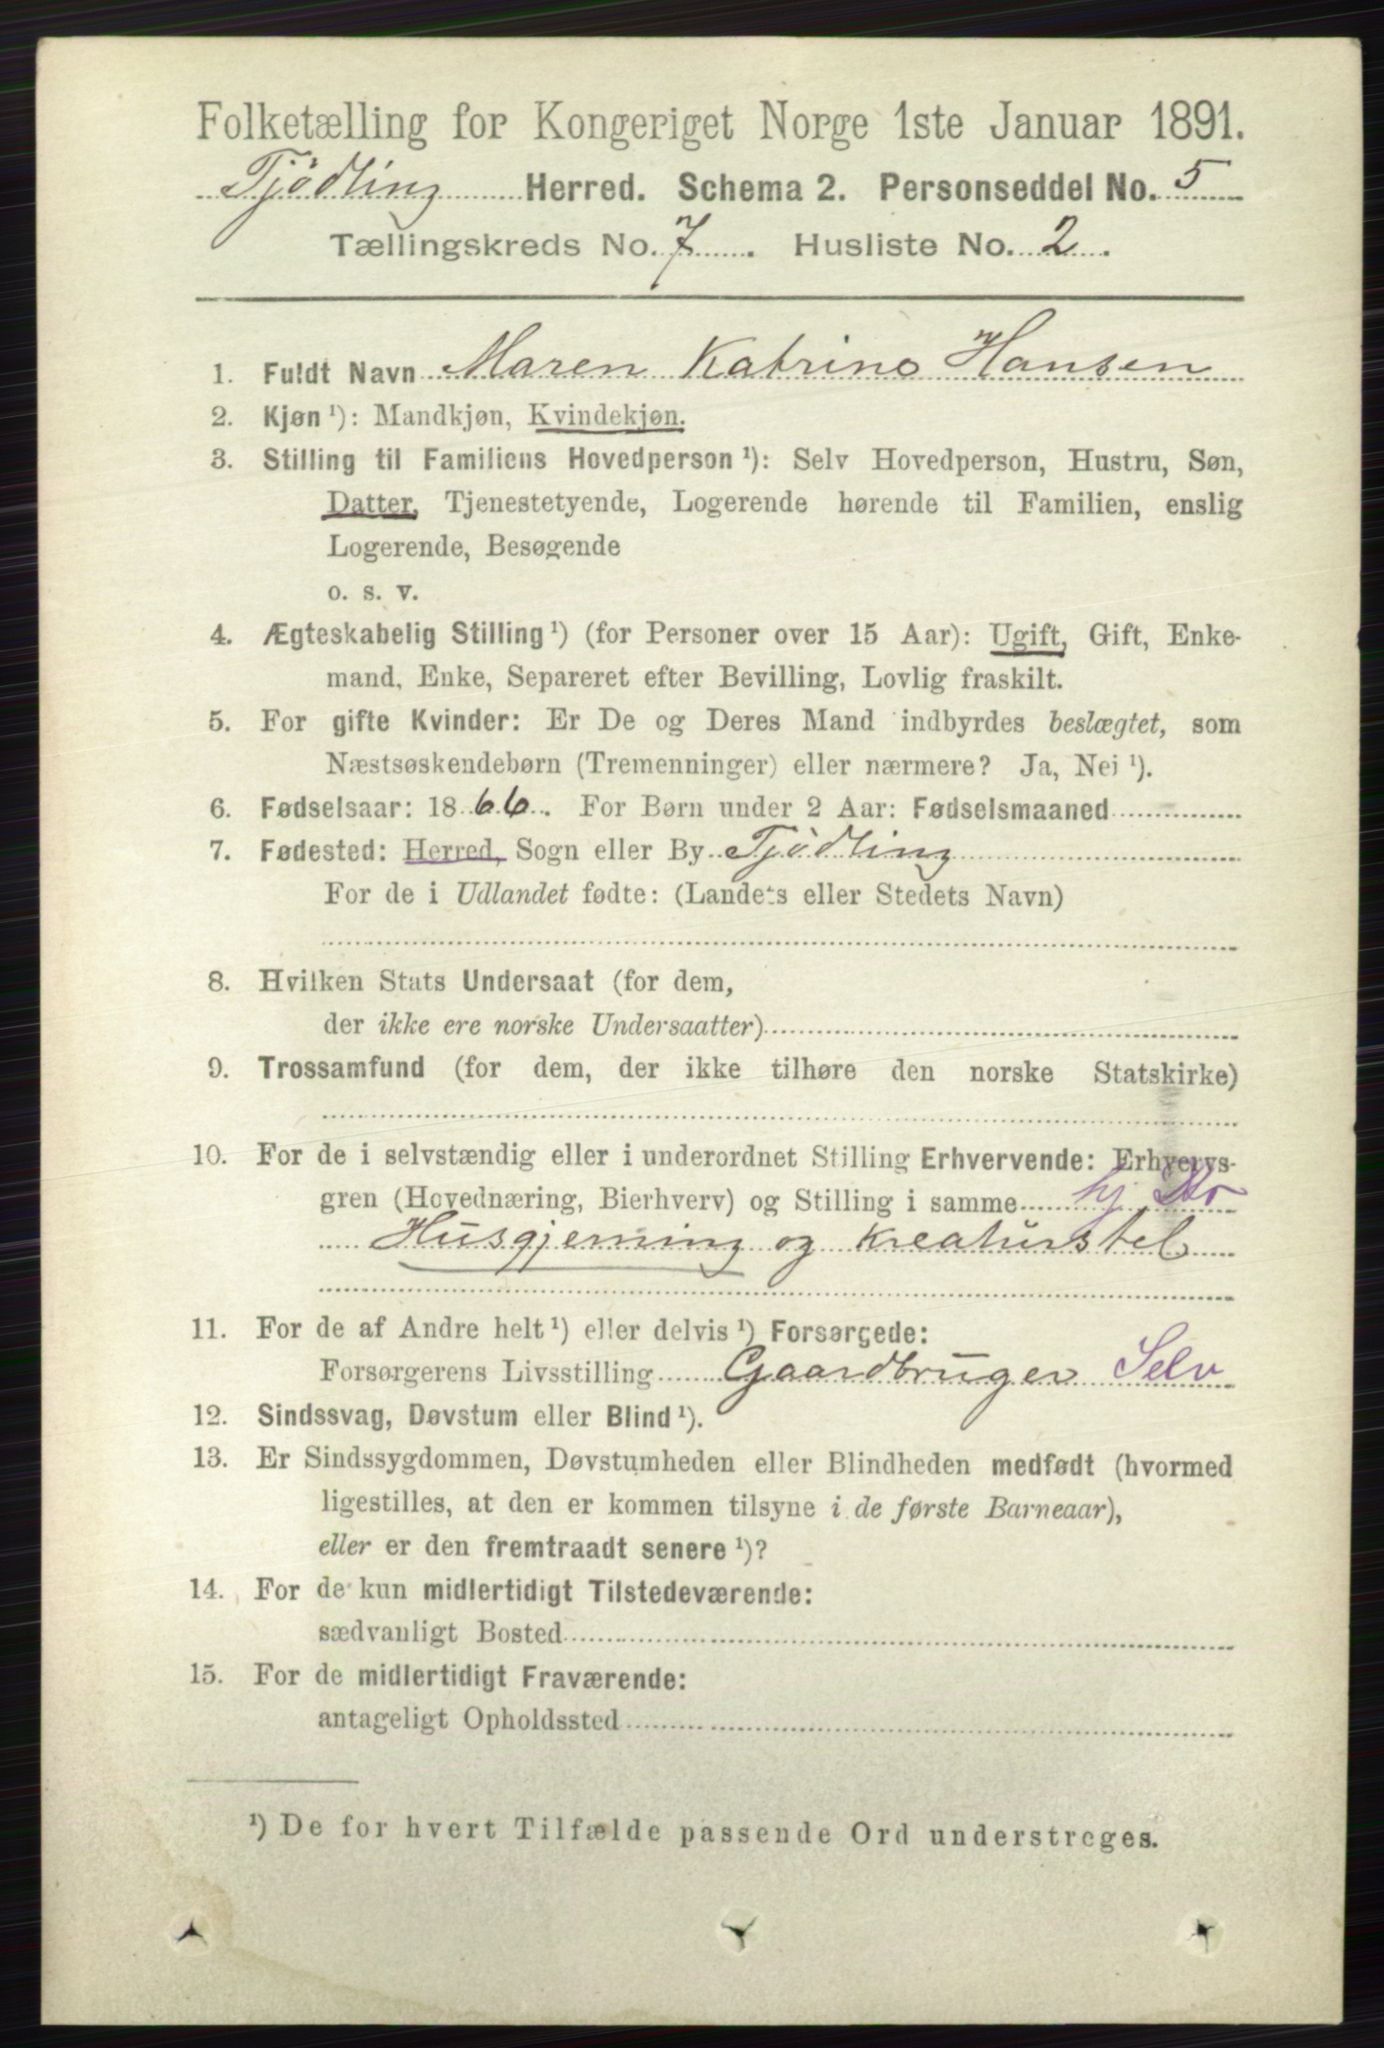 Folketælling for Kongeriget Norge 1ste Januar 1891.
Tjødling Herred. Schema 2. Personseddel No. 5
Tællingskreds No. 7. Husliste No. 2.
1. Fuldt Navn Maren Katrine Hansen
2. Kjøn ¹): Mandkjøn, Kvindekjøn.
3. Stilling til Familiens Hovedperson ¹): Selv Hovedperson, Hustru, Søn,
Datter, Tjenestetyende, Logerende hørende til Familien, enslig
Logerende, Besøgende
o. s. v.
4. Ægteskabelig Stilling ¹) (for Personer over 15 Aar): Ugift, Gift, Enke-
mand, Enke, Separeret efter Bevilling, Lovlig fraskilt.
5. For gifte Kvinder: Er De og Deres Mand indbyrdes beslægtet, som
Næstsøskendebørn (Tremenninger) eller nærmere? Ja, Nei ¹).
6. Fødselsaar: 1866. For Børn under 2 Aar: Fødselsmaaned
7. Fødested: Herred, Sogn eller By Tjødling
For de i Udlandet fødte: (Landets eller Stedets Navn)
8. Hvilken Stats Undersaat (for dem,
der ikke ere norske Undersaatter)
9. Trossamfund (for dem, der ikke tilhøre den norske Statskirke)
10. For de i selvstændig eller i underordnet Stilling Erhvervende: Erhvervs-
gren (Hovednæring, Bierhverv) og Stilling i samme hj.
Husgjerning og Kreaturstel
11. For de af Andre helt ¹) eller delvis ¹) Forsørgede:
Forsørgerens Livsstilling Gaardbruger Selv
12. Sindssvag, Døvstum eller Blind ¹).
13. Er Sindssygdommen, Døvstumheden eller Blindheden medfødt (hvormed
ligestilles, at den er kommen tilsyne i de første Barneaar),
eller er den fremtraadt senere ¹)?
14. For de kun midlertidigt Tilstedeværende:
sædvanligt Bosted
15. For de midlertidigt Fraværende:
antageligt Opholdssted
¹) De for hvert Tilfælde passende Ord understreges.